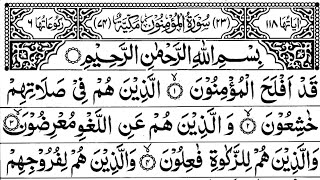 اٰیَاتُهَا ١١٨ (٢٣) سُوْرَةُ الْمُؤْمِنُوْنَ مَكِّیَّةٌ (٧٤) رُكُوْعَاتُهَا ٦
بِسْمِ اللهِ الرَّحْمٰنِ الرَّحِیْمِ
قَدْ اَفْلَحَ الْمُؤْمِنُوْنَ ۙ﴿١﴾ الَّذِیْنَ هُمْ فِیْ صَلَاتِهِمْ
خٰشِعُوْنَ ۙ﴿٢﴾ وَالَّذِیْنَ هُمْ عَنِ اللَّغْوِ مُعْرِضُوْنَ ۙ﴿٣﴾
وَالَّذِیْنَ هُمْ لِلزَّكٰوةِ فٰعِلُوْنَ ۙ﴿٤﴾ وَالَّذِیْنَ هُمْ لِفُرُوْجِهِمْ